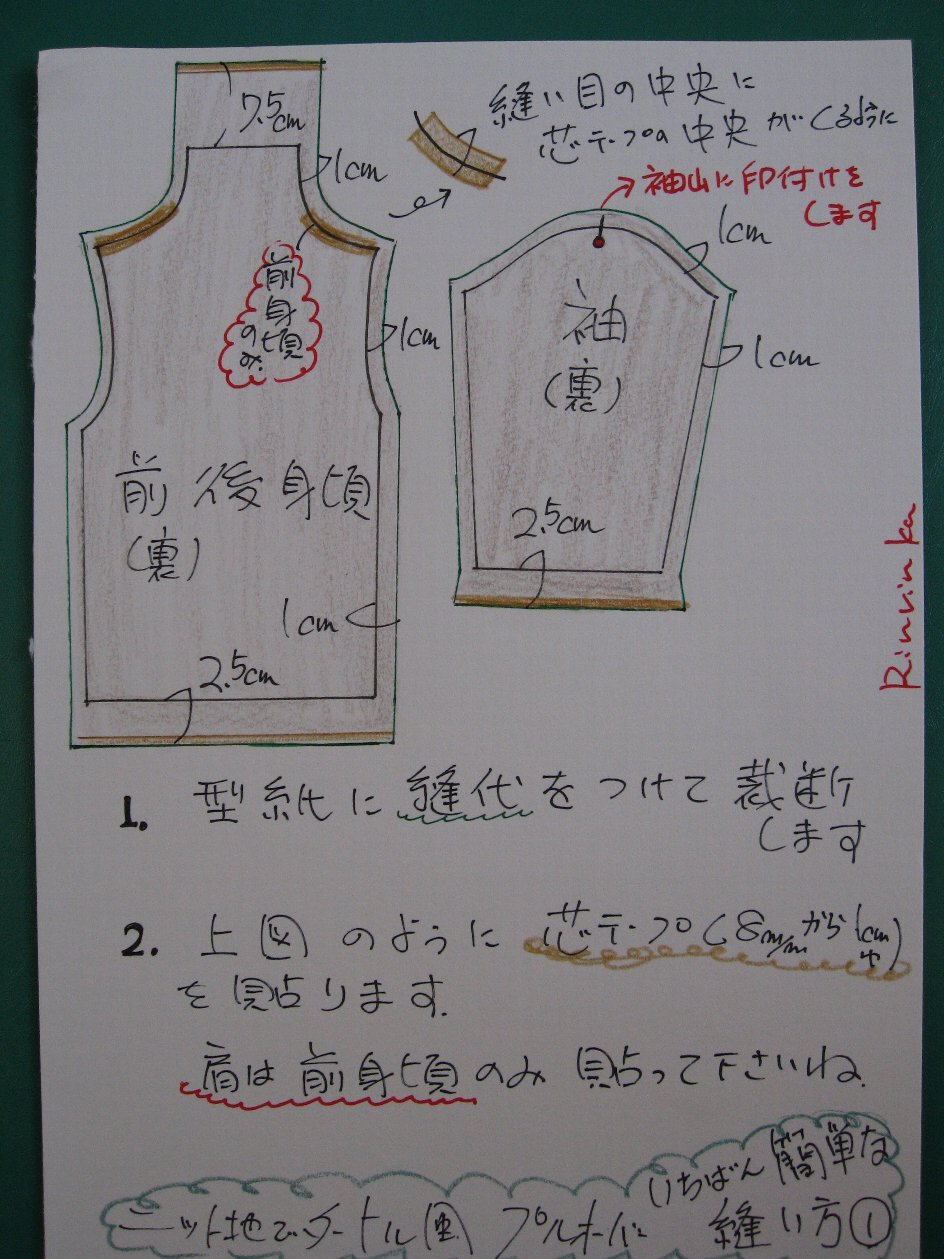 7.5cm
縫い目の中央に
芯テープの中央がくるように
1cm
袖山に印付けを
します
1cm
前身頃
のみ
1cm
袖
(裏)
1cm
前後身頃
(裏)
2.5cm
1cm
2.5cm
Rinrinka
1. 型紙に縫代をつけて裁断
します
2. 上図のように芯テープ(8m/mから1cm巾)
を貼ります.
肩は前身頃のみ貼って下さいね.
いちばん簡単な
ニット地でタートル プルオーバー 縫い方①